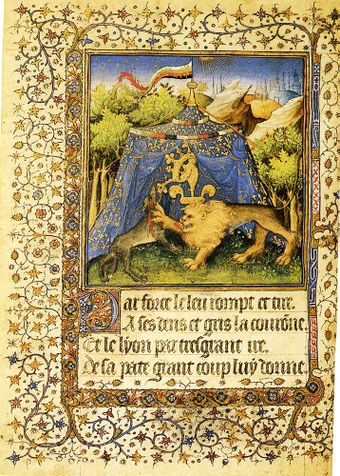 Par force le leu rompt et tire.
A ses dens et gris la courõne.
Et le lyon par tresgrant ire.
De sa pate grant coup luy donne.